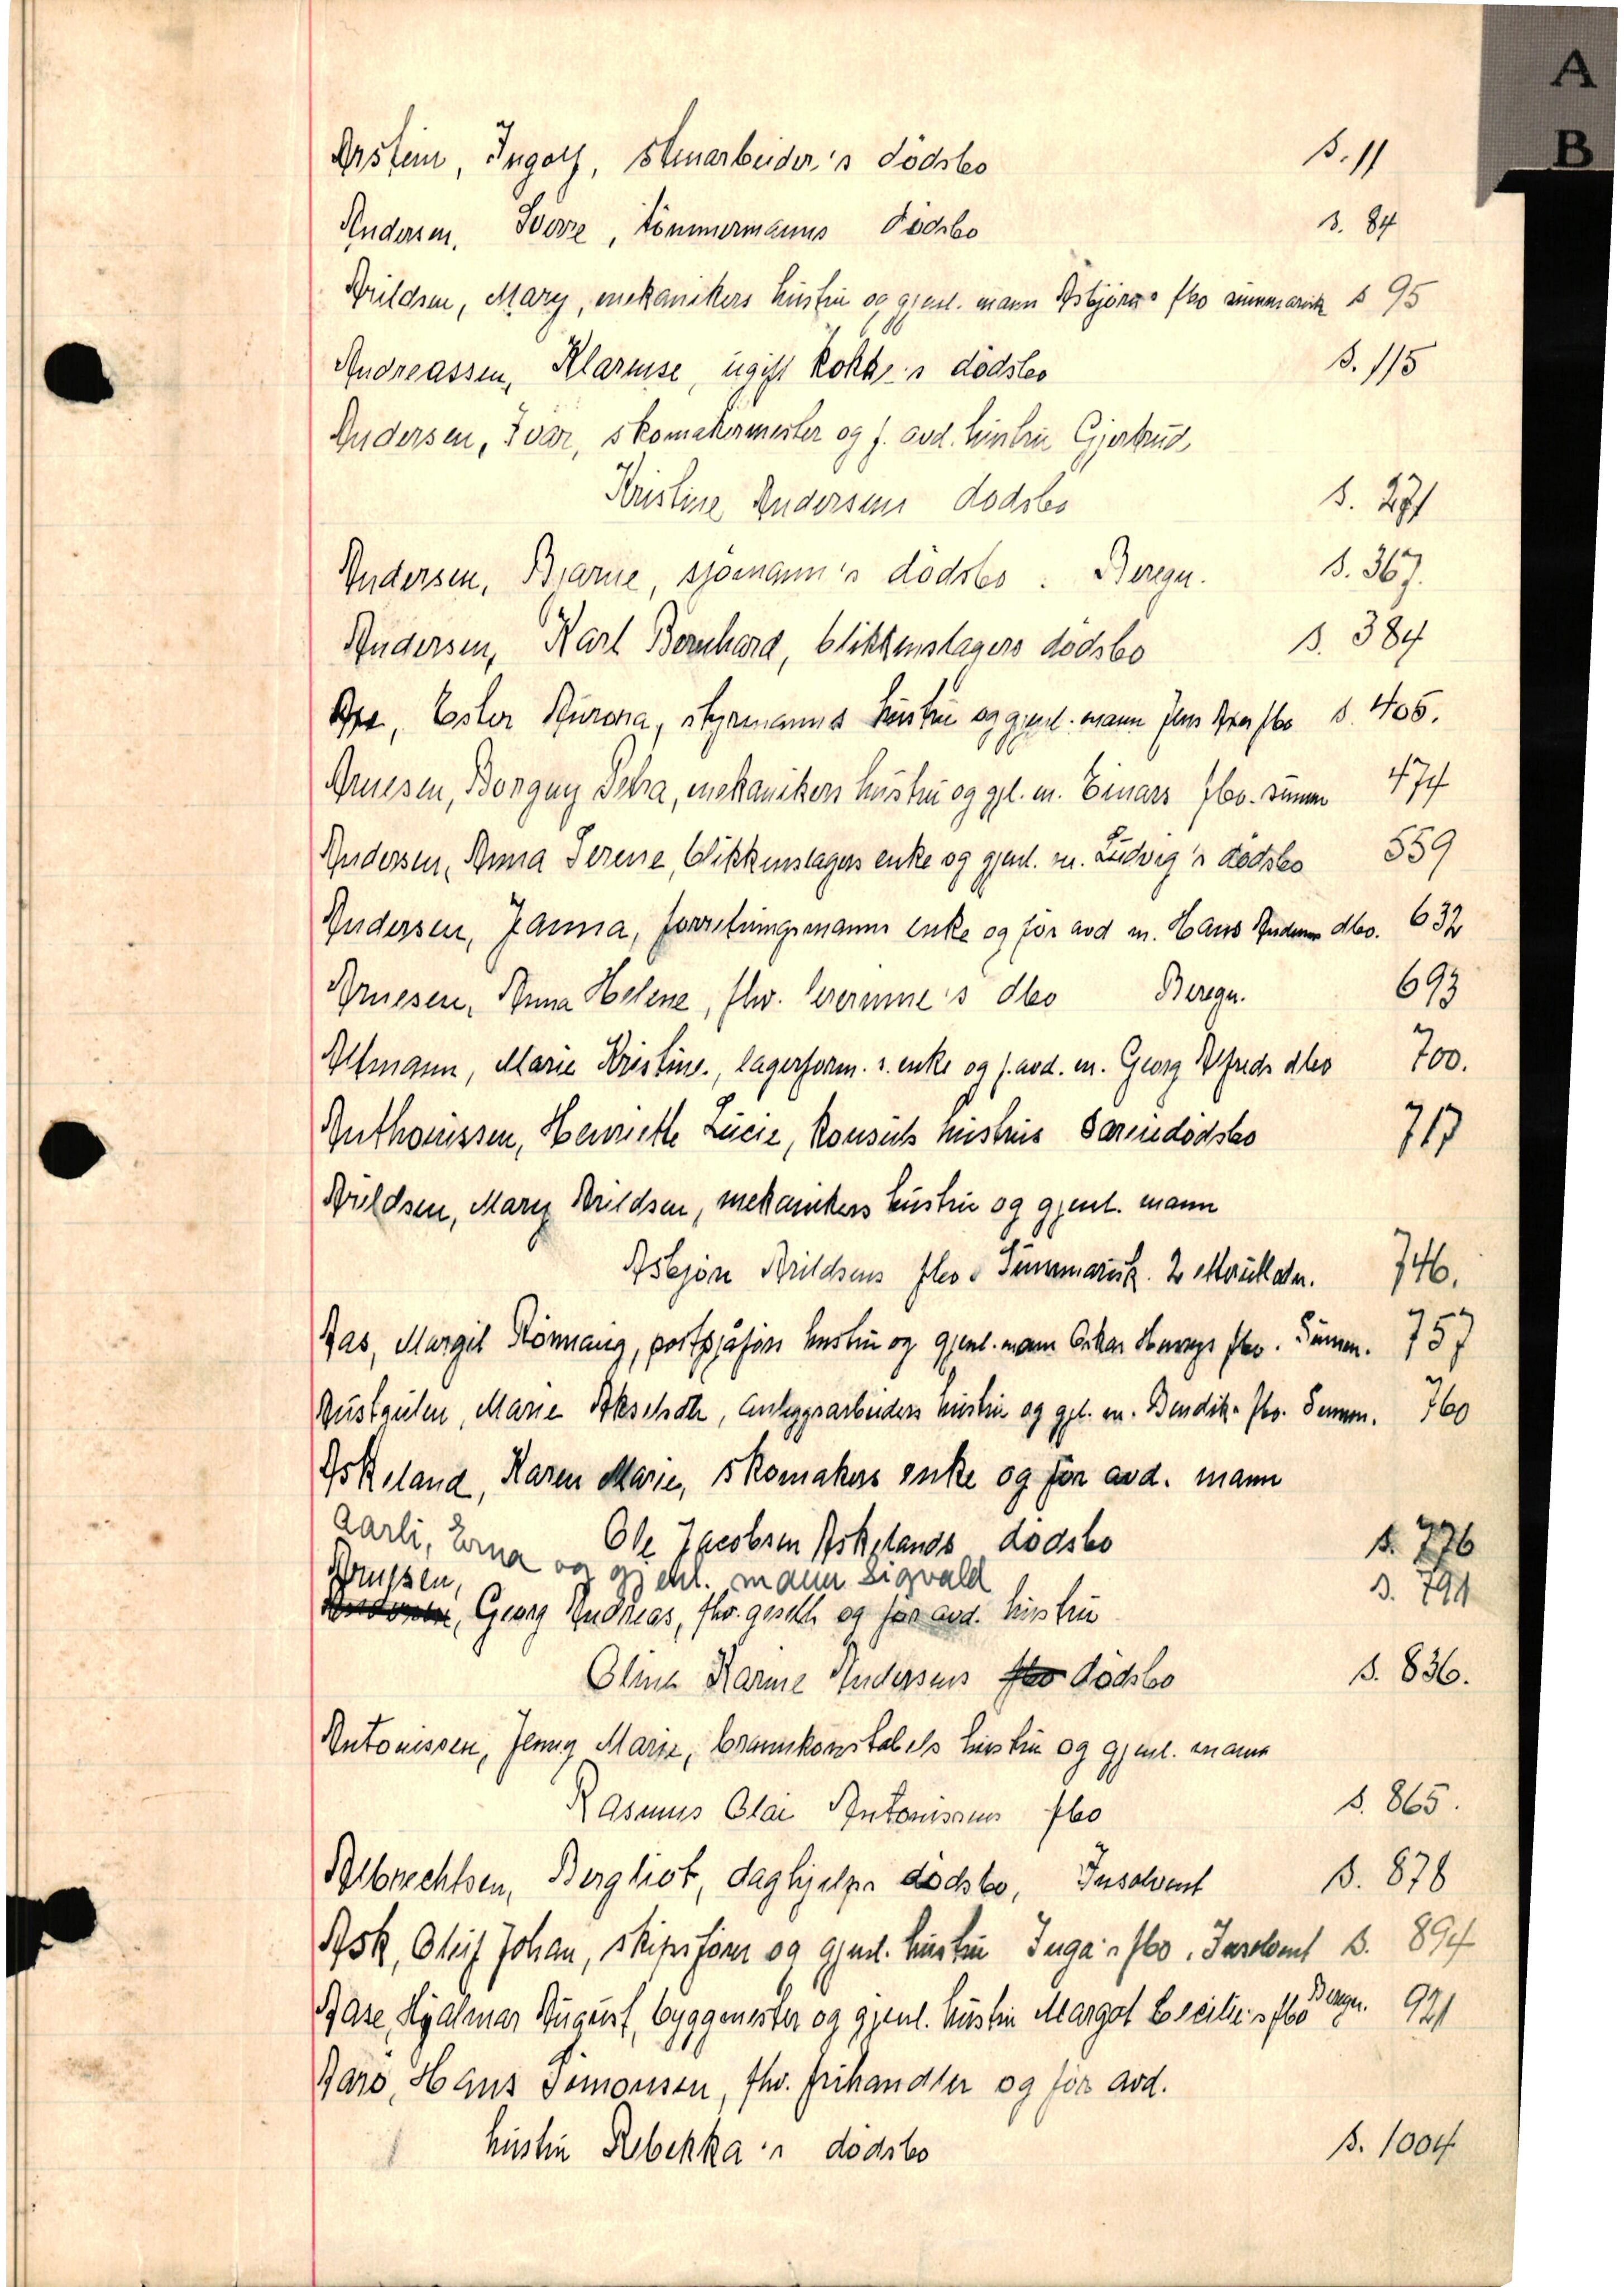 A
B
Arstein, Ingolf, stenarbeider's dödsbo s. 11
Andersen, Sverre, tömmermanns dödsbo s. 84
Arildsen, Mary, mekanikers hustru og gjenl. mann Asbjörn's fbo summarisk s 95
Andreassen, Klaruse, ugift kokke's dödsbo s. 115
Andersen, Ivar, skomakermester og f. avd. hustru Gjertrud
Kristine Andersens dödsbo s. 271
Andersen, Bjarne, sjömann's dödsbo. Beregn. s. 367.
Andersen, Karl Bernhard, blikkenslagers dödsbo s. 384
Ester Aurora, styrmanns hustru og gjenl. mann Jens fbo s. 405.
Arnesen, Borgny Petra, mekanikers hustru og gjl. m. Einars fbo. summ 474
Andersen, Anna Serene, blikkenslagers enke og gjenl. m. Ludvig's dödsbo 559
Andersen, Janna, forretningsmanns enke og för avd m. Hans Andersens dbo. 632
Arnesen, Anna Helene, fhv. lererinne's dbo Beregn. 693
Altmann, Marie Kristine, lagerform. s. enke og f. avd. m. Georg Alfreds dbo 700.
Anthonissen, Henriette Lucie, konsuls hustrus Særeiedödsbo 717
Arildsen, Mary Arildsen, mekanikers hustru og gjenl. mann
Asbjörn Arildsens fbo. Summarisk. 746.
Aas, Margit Rönnaug, postsjåförs hustru og gjenl. mann Oskar fbo. Summ. 757
Austgulen, Marie, anleggsarbeiders hustru og gjl. m. Bendik's fbo. Summ. 760
Askeland, Karen Marie, skomakers enke og för avd. mann
Ole Jacobsen Askelands dödsbo s. 776
Aarli, Erna og gjenl. mann Sigvald s. 791
Arnesen, Georg Andreas, fhv. geselle og för avd. hustru
Oline Karine Andersens fbo dödsbo s. 836.
Antonissen, Jenny Marie, brannkonstabels hustru og gjenl. mann
Rasmus Olai Antonissens fbo s. 865.
Albrechtsen, Bergliot, daghjelps dödsbo, Insolvent s. 878
Ask, Oleif Johan, skipsförer og gjenl. hustru Inga's fbo. Insolvent s. 894
Aase, Hjalmar August, byggmester og gjenl. hustru Margot Cecilie's fbo Beregn. 921
Aarö, Hans Simonsen, fhv. frihandler og för avd.
hustru Rebekka's dödsbo s. 1004